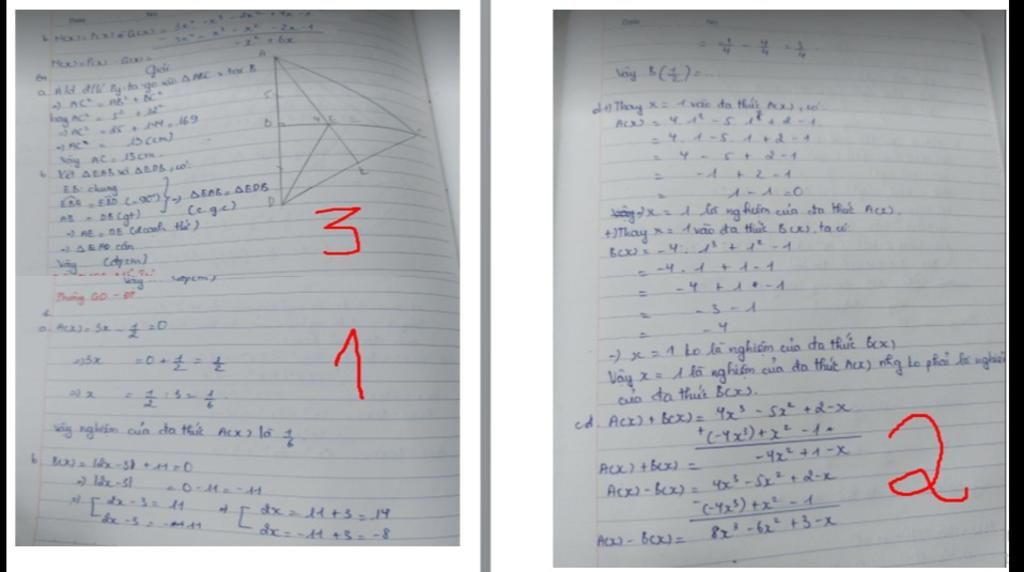 Date No
b. M(x) = P(x) + Q(x) =
M(x) = P(x) - Q(x) =
Giải
a Áđ đ/lí Py-ta-go với ΔABC
⇒ AC² = AB² + BC²
hay AC² = 5² + 12²
⇒ AC² = 25 + 144 = 169
⇒ AC = 13 (cm)
Vậy AC = 13 cm
b. Xét ΔEAB và ΔEDB, có:
EB: chung
EBA = EBD (= 90°) } ⇒ ΔEAB = ΔEDB
AB = DB (gt) (c.g.c)
⇒ AE = DE (2 cạnh t/ứ)
⇒ ΔEAD cân
Vậy (đpcm)
A
5
B
4
E
C
D
3
Vậy (đpcm)
Phòng GD - ĐT
a. A(x) = 3x - 1/2 = 0
⇒ 3x = 0 + 1/2 = 1/2
⇒ x = 1/2 : 3 = 1/6
Vậy nghiệm của đa thức A(x) là 1/6
b B(x) = |2x-3| + 11 = 0
⇒ |2x-3| = 0 - 11 = -11
⇒ [ 2x - 3 = 11 ⇒ [ 2x = 11 + 3 = 14
2x - 3 = -11 2x = -11 + 3 = -8
1
Date No
Vậy B(1/2) = ...
d +) Thay x = 1 vào đa thức A(x), có:
A(x) = 4. 1³ - 5. 1² + 2 - 1
= 4. 1 - 5. 1 + 2 - 1
= 4 - 5 + 2 - 1
= -1 + 2 - 1
= 1 - 1 = 0
⇒ x = 1 là nghiệm của đa thức A(x).
+) Thay x = 1 vào đa thức B(x), ta có:
B(x) = -4. 1³ + 1² - 1
= -4. 1 + 1 - 1
= -4 + 1 - 1
= -3 - 1
= -4
⇒ x = 1 ko là nghiệm của đa thức B(x)
Vậy x = 1 là nghiệm của đa thức A(x) nhg ko phải là nghiệm
của đa thức B(x).
c A(x) + B(x) = 4x³ - 5x² + 2 - x
+ (-4x³) + x² - 1
A(x) + B(x) = -4x² + 1 - x
A(x) - B(x) = 4x³ - 5x² + 2 - x
- (-4x³) + x² - 1
A(x) - B(x) = 8x³ - 6x² + 3 - x
2